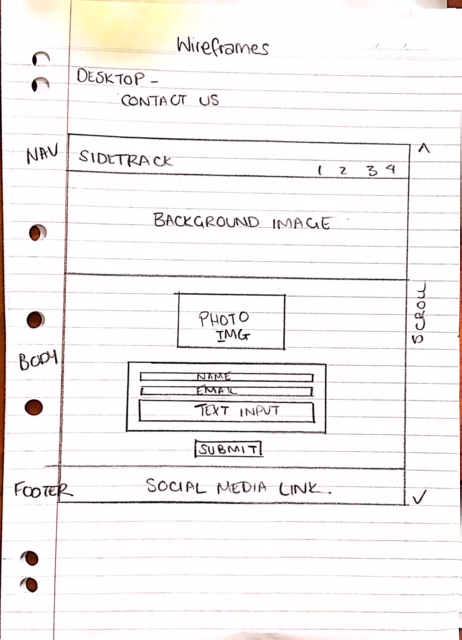 Wireframes
DESKTOP -
CONTACT US
NAV
SIDETRACK
1 2 3 4
^
BACKGROUND IMAGE
SCROLL
PHOTO
IMG
BODY
NAME
EMAIL
TEXT INPUT
SUBMIT
FOOTER
SOCIAL MEDIA LINK.